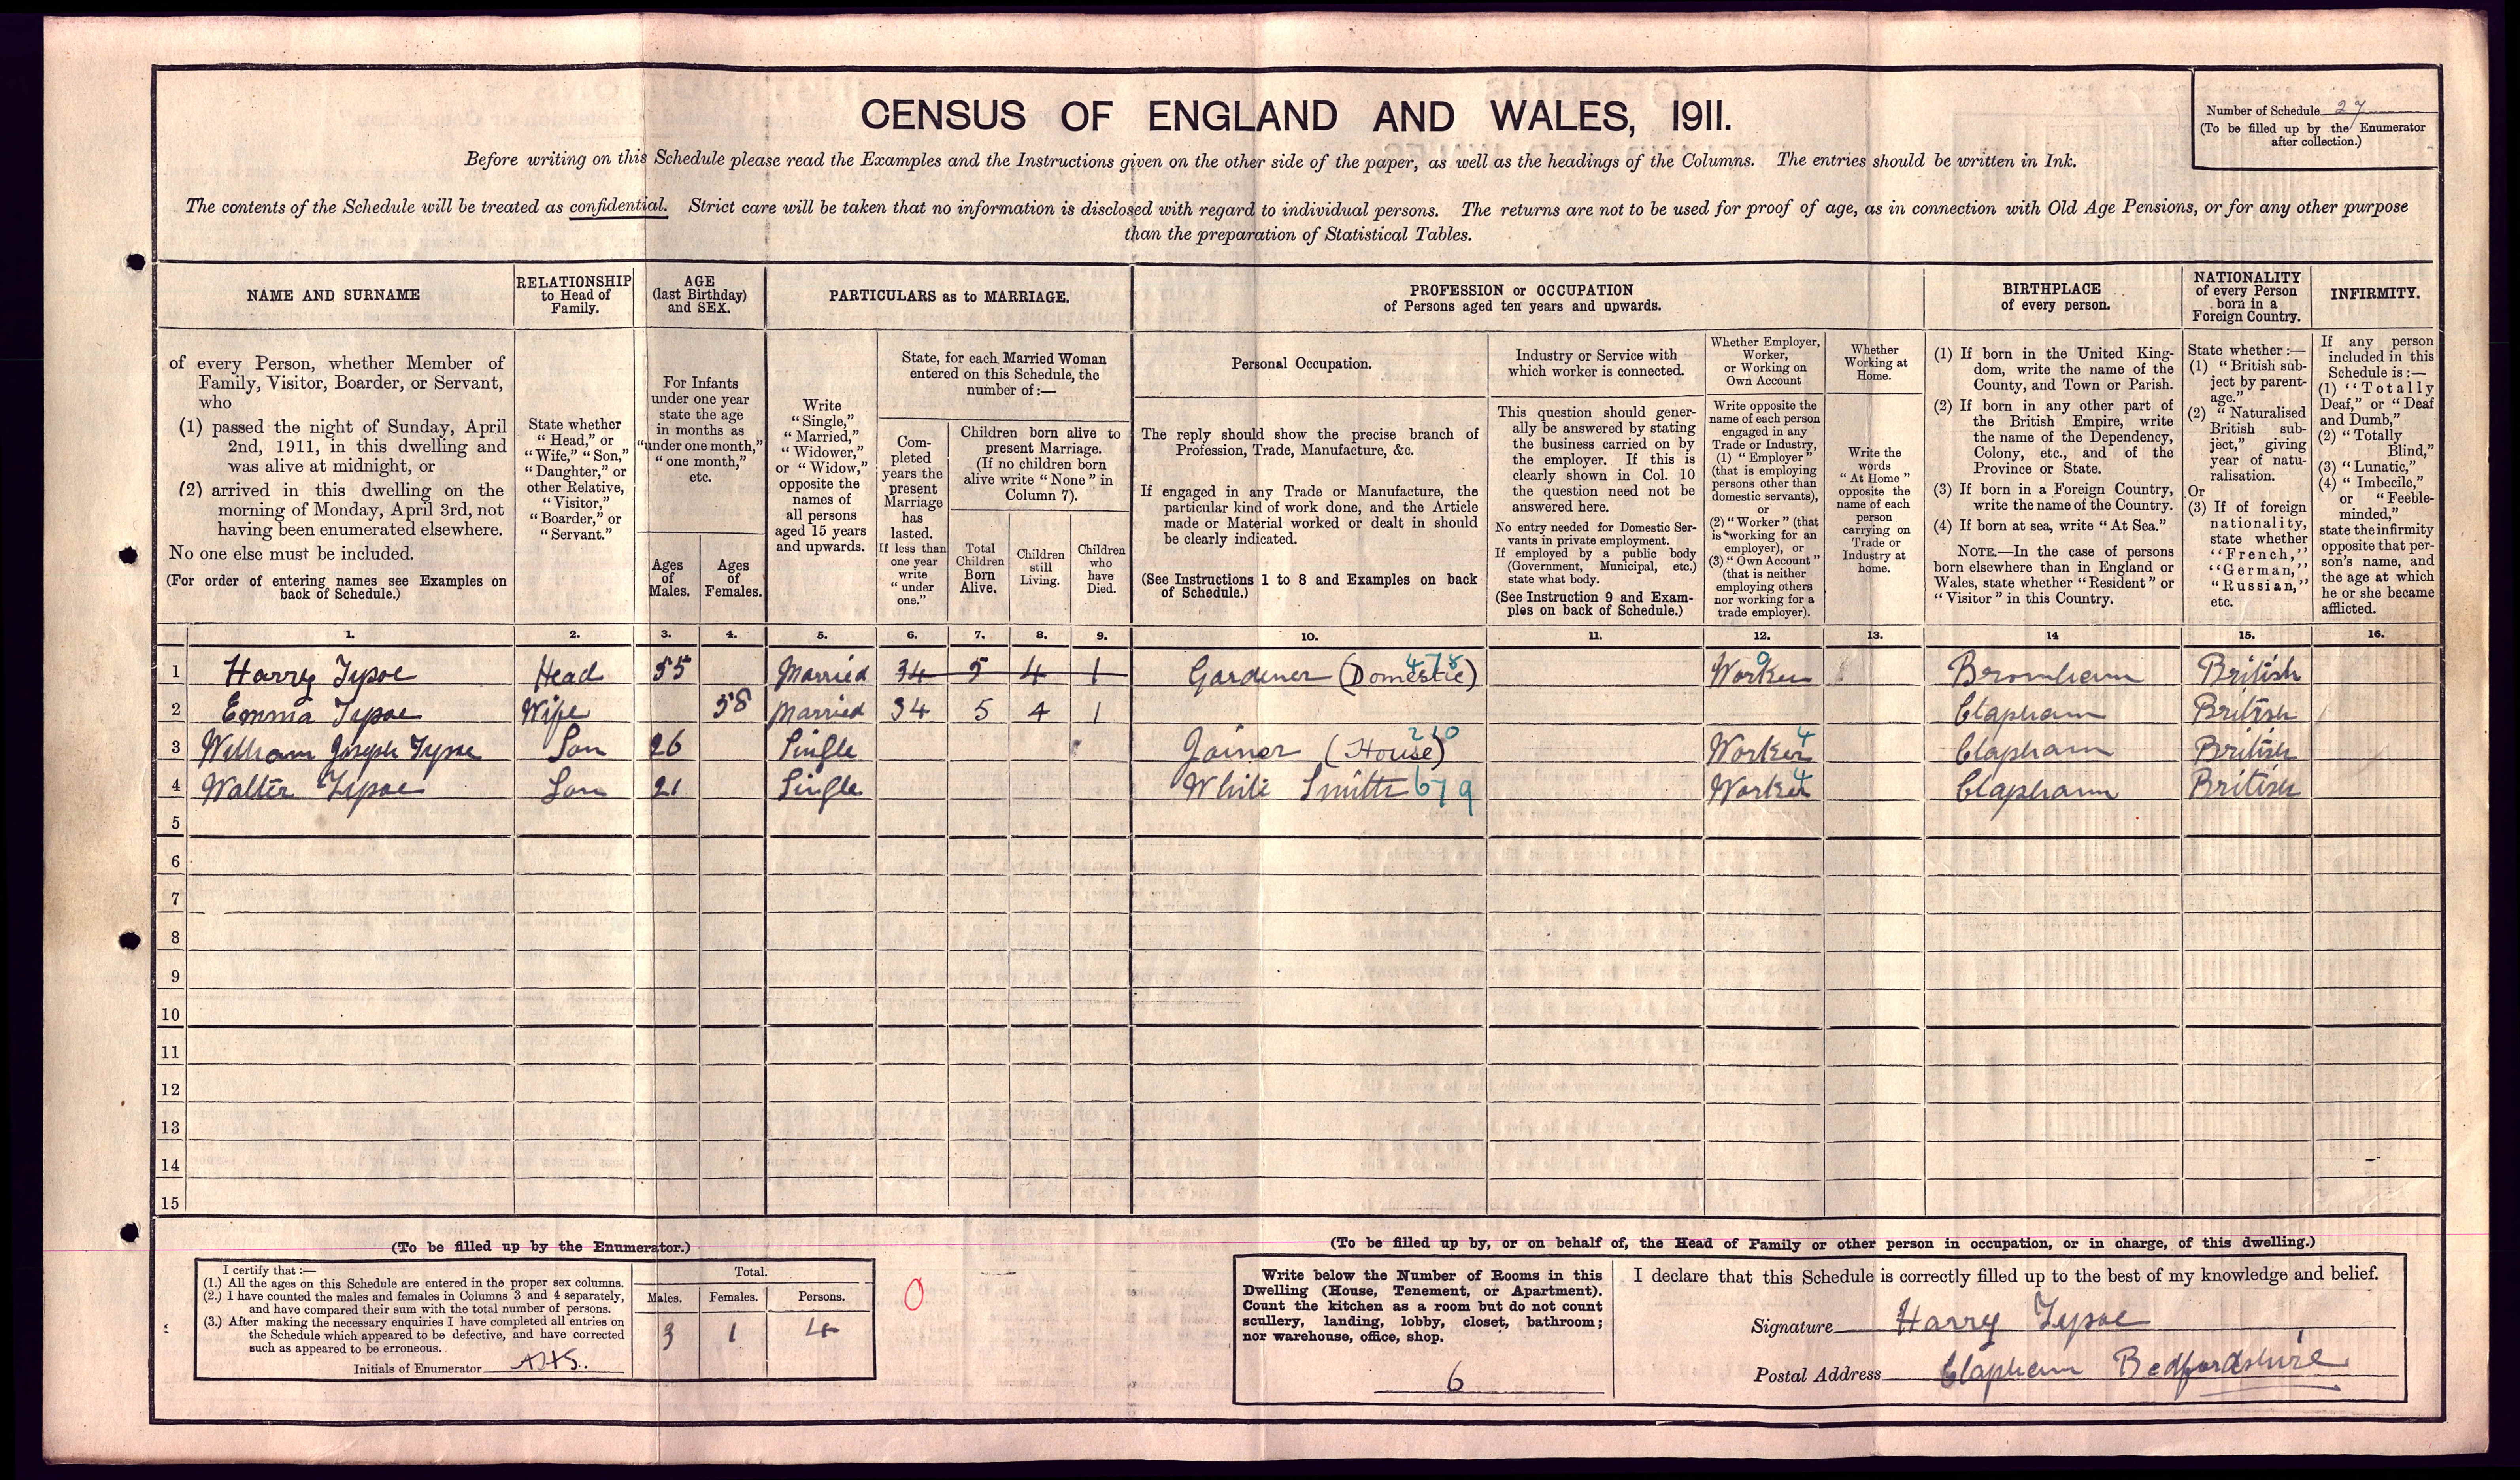 CENSUS OF ENGLAND AND WALES, 1911.
Number of Schedule 27
(To be filled up by the Enumerator
after collection.)
Before writing on this Schedule please read the Examples and the Instructions given on the other side of the paper, as well as the headings of the Columns. The entries should be written in Ink.
The contents of the Schedule will be treated as confidential. Strict care will be taken that no information is disclosed with regard to individual persons. The returns are not to be used for proof of age, as in connection with Old Age Pensions, or for any other purpose
than the preparation of Statistical Tables.
NAME AND SURNAME
of every Person, whether Member of
Family, Visitor, Boarder, or Servant,
who
(1) passed the night of Sunday, April
2nd, 1911, in this dwelling and
was alive at midnight, or
(2) arrived in this dwelling on the
morning of Monday, April 3rd, not
having been enumerated elsewhere.
No one else must be included.
(For order of entering names see Examples on
back of Schedule.)
RELATIONSHIP
to Head of
Family.
State whether
"Head," or
"Wife," "Son,"
"Daughter," or
other Relative,
"Visitor,"
"Boarder," or
"Servant."
AGE
(last Birthday)
and SEX.
For Infants
under one year
state the age
in months as
"under one month,"
"one month,"
etc.
Ages
of
Males.
Ages
of
Females.
PARTICULARS as to MARRIAGE.
Write
"Single,"
"Married,"
"Widower,"
or "Widow,"
opposite the
names of
all persons
aged 15 years
and upwards.
State, for each Married Woman
entered on this Schedule, the
number of :—
Com-
pleted
years the
present
Marriage
has
lasted.
If less than
one year
write
"under
one."
Children born alive to
present Marriage.
(If no children born
alive write "None" in
Column 7).
Total
Children
Born
Alive.
Children
still
Living.
Children
who
have
Died.
PROFESSION or OCCUPATION
of Persons aged ten years and upwards.
Personal Occupation.
The reply should show the precise branch of
Profession, Trade, Manufacture, &c.
If engaged in any Trade or Manufacture, the
particular kind of work done, and the Article
made or Material worked or dealt in should
be clearly indicated.
(See Instructions 1 to 8 and Examples on back
of Schedule.)
Industry or Service with
which worker is connected.
This question should gener-
ally be answered by stating
the business carried on by
the employer. If this is
clearly shown in Col. 10
the question need not be
answered here.
No entry needed for Domestic Ser-
vants in private employment.
If employed by a public body
(Government, Municipal, etc.)
state what body.
(See Instruction 9 and Exam-
ples on back of Schedule.)
Whether Employer,
Worker,
or Working on
Own Account
Write opposite the
name of each person
engaged in any
Trade or Industry,
(1) "Employer"
(that is employing
persons other than
domestic servants),
or
(2) "Worker" (that
is working for an
employer), or
(3) "Own Account"
(that is neither
employing others
nor working for a
trade employer).
Whether
Working at
Home.
Write the
words
"At Home"
opposite the
name of each
person
carrying on
Trade or
Industry at
home.
BIRTHPLACE
of every person.
(1) If born in the United King-
dom, write the name of the
County, and Town or Parish.
(2) If born in any other part of
the British Empire, write
the name of the Dependency,
Colony, etc., and of the
Province or State.
(3) If born in a Foreign Country,
write the name of the Country.
(4) If born at sea, write "At Sea."
NOTE.—In the case of persons
born elsewhere than in England or
Wales, state whether "Resident" or
"Visitor" in this Country.
NATIONALITY
of every Person
born in a
Foreign Country.
State whether :—
(1) "British sub-
ject by parent-
age."
(2) "Naturalised
British sub-
ject," giving
year of natu-
ralisation.
Or
(3) If of foreign
nationality,
state whether
"French,"
"German,"
"Russian,"
etc.
INFIRMITY.
If any person
included in this
Schedule is :—
(1) "Totally
Deaf," or "Deaf
and Dumb,"
(2) "Totally
Blind,"
(3) "Lunatic,"
(4) "Imbecile,"
or "Feeble-
minded,"
state the infirmity
opposite that per-
son's name, and
the age at which
he or she became
afflicted.
1. 2. 3. 4. 5. 6. 7. 8. 9. 10. 11. 12. 13. 14 15. 16.
1 Harry Tysoe Head 55 Married 34 5 4 1 Gardener (Domestic) 478 Worker 9 Bromham British
2 Emma Tysoe Wife 58 Married 34 5 4 1 Clapham British
3 William Joseph Tysoe Son 26 Single Joiner (House) 210 Worker 4 Clapham British
4 Walter Tysoe Son 21 Single White Smith 679 Worker 4 Clapham British
5
6
7
8
9
10
11
12
13
14
15
(To be filled up by the Enumerator.)
I certify that :—
(1.) All the ages on this Schedule are entered in the proper sex columns.
(2.) I have counted the males and females in Columns 3 and 4 separately,
and have compared their sum with the total number of persons.
(3.) After making the necessary enquiries I have completed all entries on
the Schedule which appeared to be defective, and have corrected
such as appeared to be erroneous.
Initials of Enumerator
Total.
Males. Females. Persons.
3 1 4
0
(To be filled up by, or on behalf of, the Head of Family or other person in occupation, or in charge, of this dwelling.)
Write below the Number of Rooms in this
Dwelling (House, Tenement, or Apartment).
Count the kitchen as a room but do not count
scullery, landing, lobby, closet, bathroom;
nor warehouse, office, shop.
6
I declare that this Schedule is correctly filled up to the best of my knowledge and belief.
Signature Harry Tysoe
Postal Address Clapham Bedfordshire